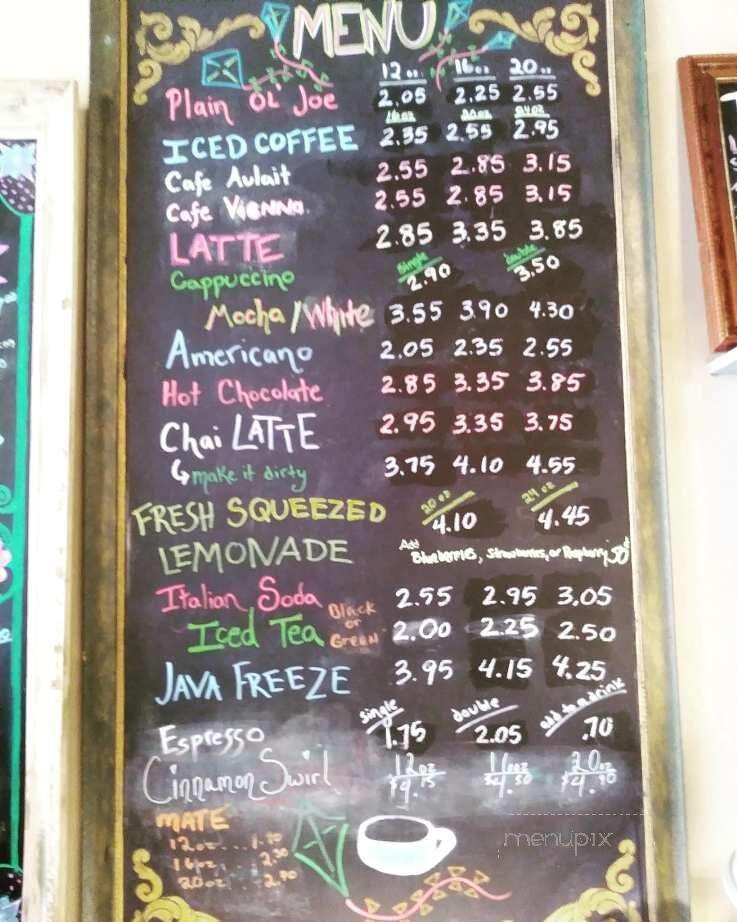 MENU
12oz 16oz 20oz
Plain OL' Joe 2.05 2.25 2.55
16oz 20oz 24oz
ICED COFFEE 2.35 2.55 2.95
Cafe Aulait 2.55 2.85 3.15
Cafe Vienna 2.55 2.85 3.15
LATTE 2.85 3.35 3.85
single double
Cappuccino 2.90 3.50
Mocha/White 3.55 3.90 4.30
Americano 2.05 2.35 2.55
Hot Chocolate 2.85 3.35 3.85
Chai LATTE 2.95 3.35 3.75
make it dirty 3.75 4.10 4.55
20oz 24oz
FRESH SQUEEZED 4.10 4.45
LEMONADE Add Blueberries, Strawberries, or Raspberry .50¢
Italian Soda 2.55 2.95 3.05
Iced Tea Black or Green 2.00 2.25 2.50
JAVA FREEZE 3.95 4.15 4.25
single double add to a drink
Espresso 1.75 2.05 .70
Cinnamon Swirl 12oz 16oz 20oz
$4.15 $4.50 $4.90
MATE
12oz...
16oz...
20oz...
menupix